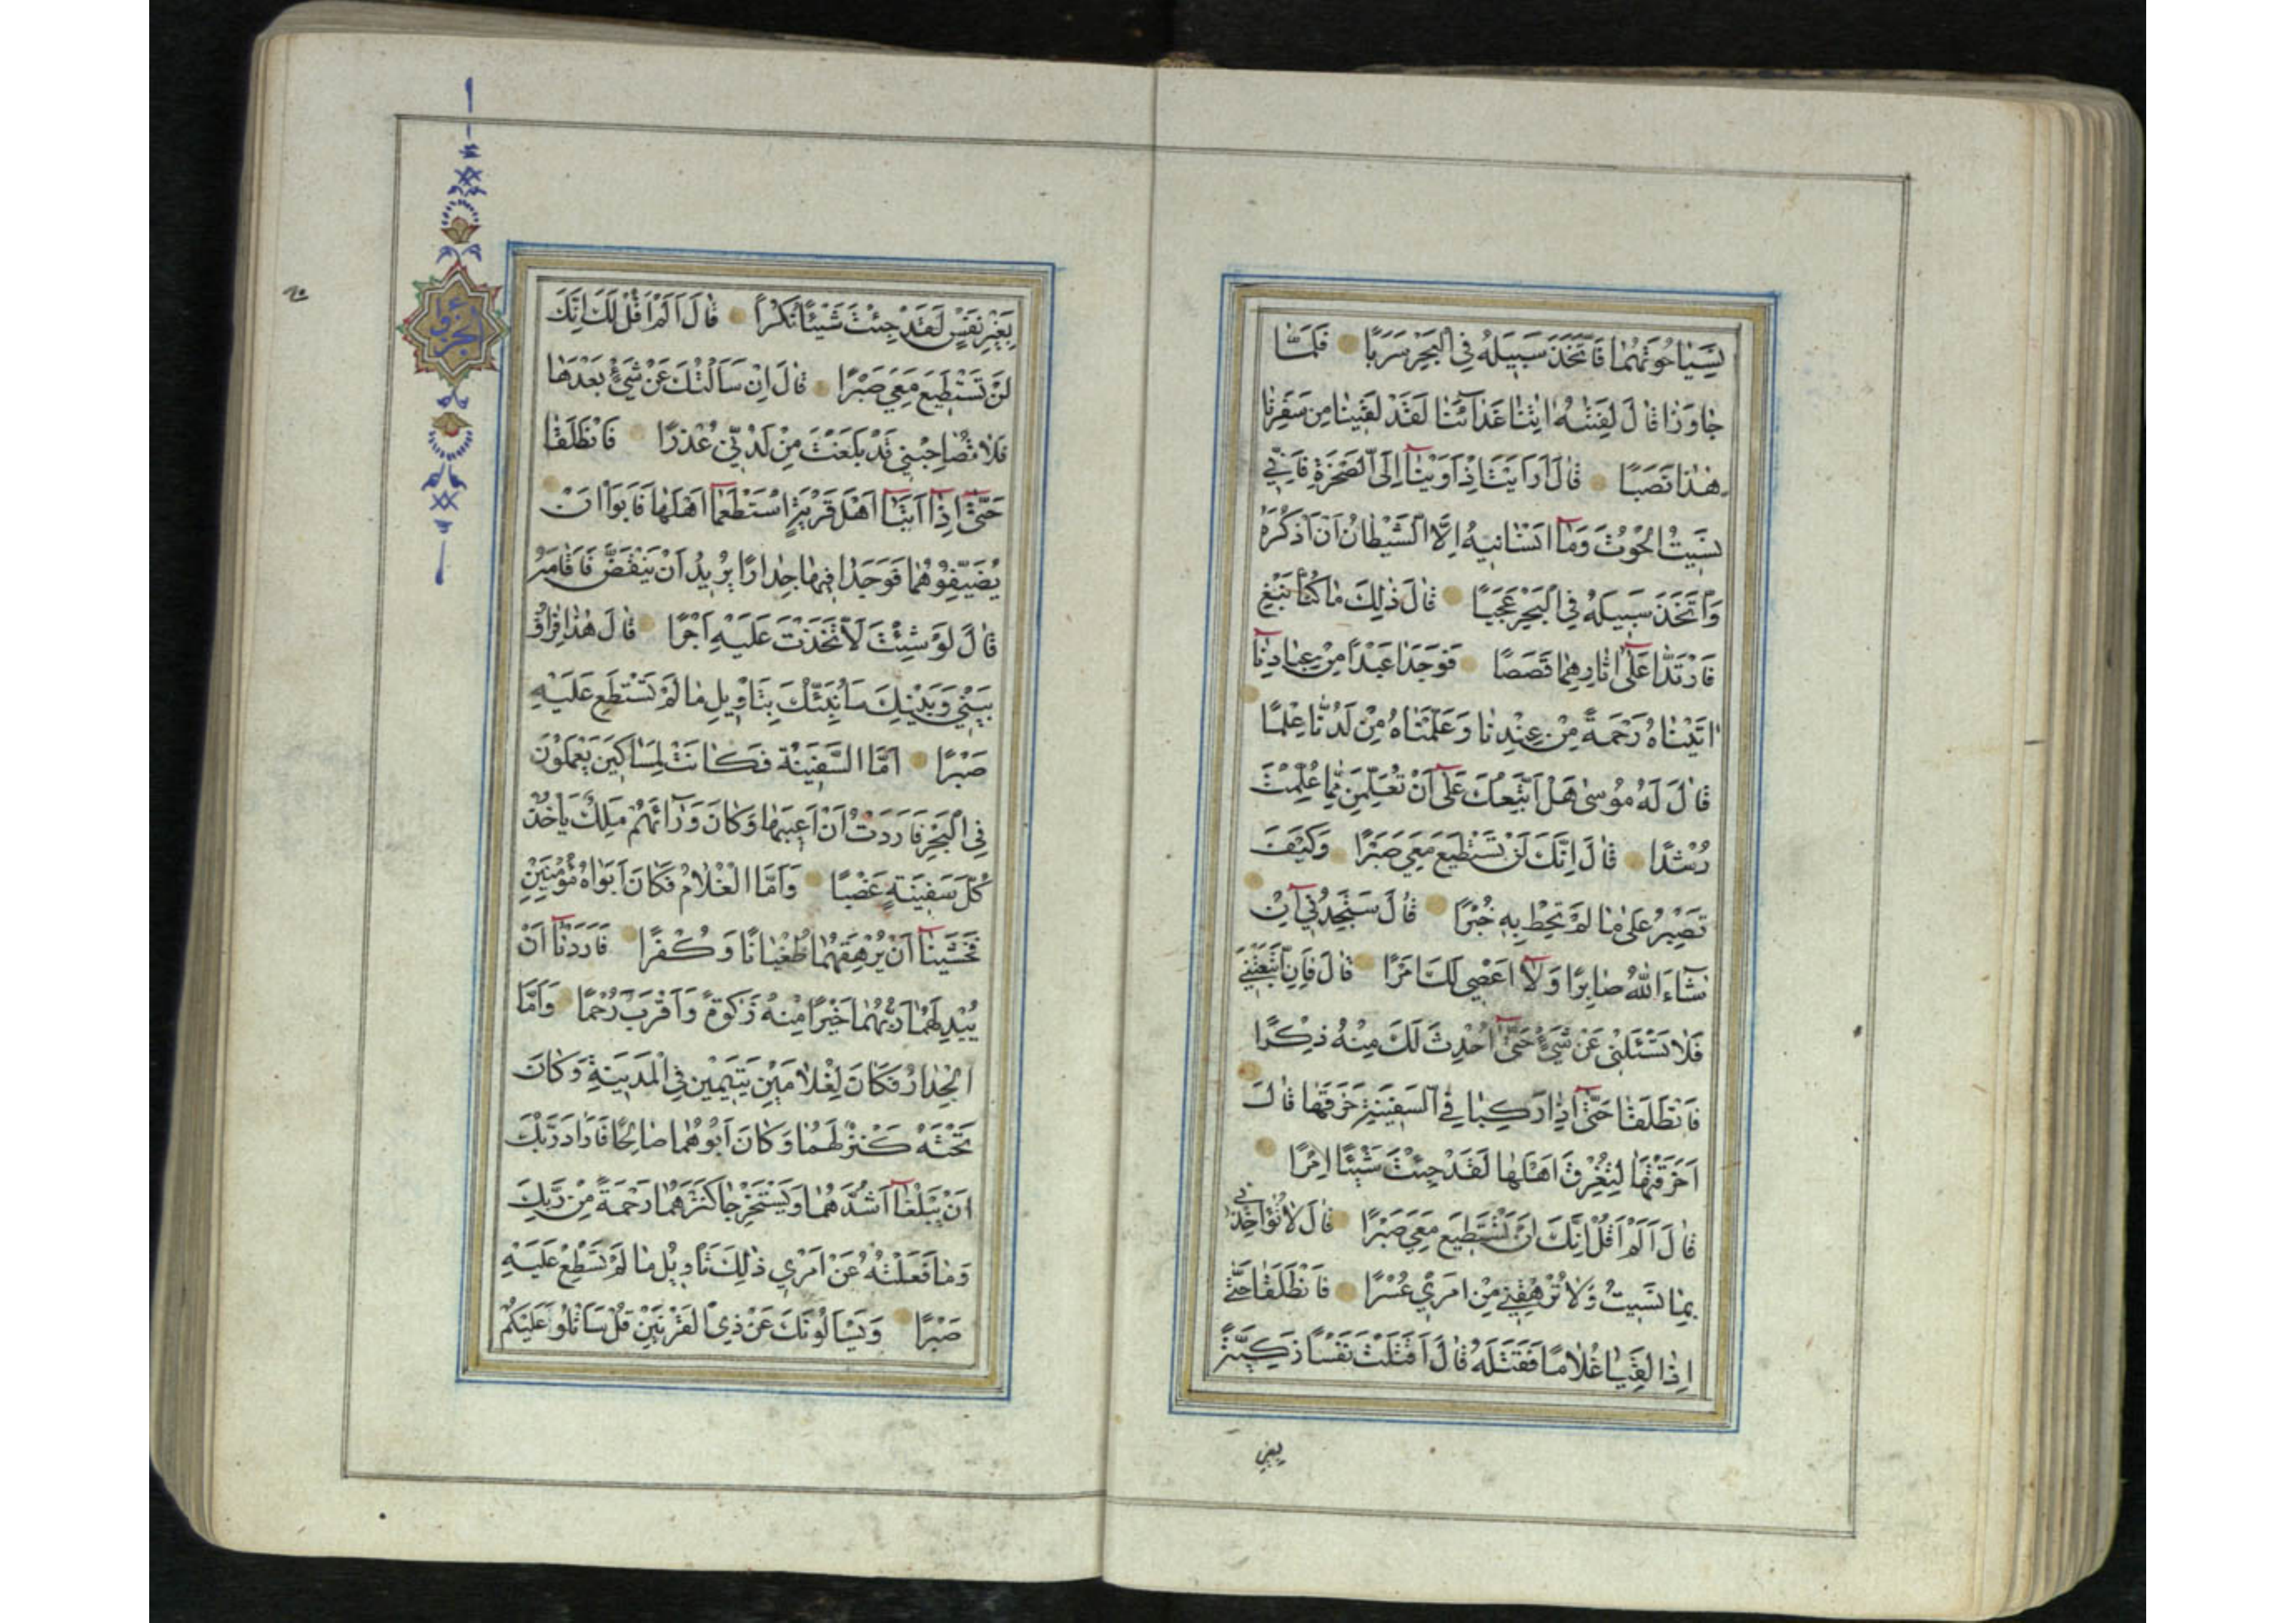 نَسِيَا حُوتَهُمَا فَاتَّخَذَ سَبِيلَهُ فِي الْبَحْرِ سَرَبًا فَلَمَّا
جَاوَزَا قَالَ لِفَتٰيهُ اٰتِنَا غَدَآئَنَا لَقَدْ لَقِينَا مِنْ سَفَرِنَا
هٰذَا نَصَبًا قَالَ اَرَاَيْتَ اِذْ اَوَيْنَآ اِلَى الصَّخْرَةِ فَاِنِّي
نَسِيتُ الْحُوتَ وَمَآ اَنْسَانِيهُ اِلَّا الشَّيْطَانُ اَنْ اَذْكُرَهُ
وَاتَّخَذَ سَبِيلَهُ فِي الْبَحْرِ عَجَبًا قَالَ ذٰلِكَ مَا كُنَّا نَبْغِ
فَارْتَدَّا عَلٰٓى اٰثَارِهِمَا قَصَصًا فَوَجَدَا عَبْدًا مِنْ عِبَادِنَآ
اٰتَيْنَاهُ رَحْمَةً مِنْ عِنْدِنَا وَعَلَّمْنَاهُ مِنْ لَدُنَّا عِلْمًا
قَالَ لَهُ مُوسٰى هَلْ اَتَّبِعُكَ عَلٰٓى اَنْ تُعَلِّمَنِ مِمَّا عُلِّمْتَ
رُشْدًا قَالَ اِنَّكَ لَنْ تَسْتَطِيعَ مَعِيَ صَبْرًا وَكَيْفَ
تَصْبِرُ عَلٰى مَا لَمْ تُحِطْ بِهِ خُبْرًا قَالَ سَتَجِدُنِيٓ اِنْ
شَآءَ اللّٰهُ صَابِرًا وَلَآ اَعْصِي لَكَ اَمْرًا قَالَ فَاِنِ اتَّبَعْتَنِي
فَلَا تَسْئَلْنِي عَنْ شَيْءٍ حَتّٰٓى اُحْدِثَ لَكَ مِنْهُ ذِكْرًا
فَانْطَلَقَا حَتّٰٓى اِذَا رَكِبَا فِي السَّفِينَةِ خَرَقَهَا قَالَ
اَخَرَقْتَهَا لِتُغْرِقَ اَهْلَهَا لَقَدْ جِئْتَ شَيْئًا اِمْرًا
قَالَ اَلَمْ اَقُلْ اِنَّكَ لَنْ تَسْتَطِيعَ مَعِيَ صَبْرًا قَالَ لَا تُؤَاخِذْنِي
بِمَا نَسِيتُ وَلَا تُرْهِقْنِي مِنْ اَمْرِي عُسْرًا فَانْطَلَقَا حَتّٰى
اِذَا لَقِيَا غُلَامًا فَقَتَلَهُ قَالَ اَقَتَلْتَ نَفْسًا زَكِيَّةً
بغير
الجزو
بِغَيْرِ نَفْسٍ لَقَدْ جِئْتَ شَيْئًا نُكْرًا قَالَ اَلَمْ اَقُلْ لَكَ اِنَّكَ
لَنْ تَسْتَطِيعَ مَعِيَ صَبْرًا قَالَ اِنْ سَاَلْتُكَ عَنْ شَيْءٍ بَعْدَهَا
فَلَا تُصَاحِبْنِي قَدْ بَلَغْتَ مِنْ لَدُنِّي عُذْرًا فَانْطَلَقَا
حَتّٰٓى اِذَآ اَتَيَآ اَهْلَ قَرْيَةٍ اسْتَطْعَمَآ اَهْلَهَا فَاَبَوْا اَنْ
يُضَيِّفُوهُمَا فَوَجَدَا فِيهَا جِدَارًا يُرِيدُ اَنْ يَنْقَضَّ فَاَقَامَهُ
قَالَ لَوْ شِئْتَ لَاتَّخَذْتَ عَلَيْهِ اَجْرًا قَالَ هٰذَا فِرَاقُ
بَيْنِي وَبَيْنِكَ سَاُنَبِّئُكَ بِتَاْوِيلِ مَا لَمْ تَسْتَطِعْ عَلَيْهِ
صَبْرًا اَمَّا السَّفِينَةُ فَكَانَتْ لِمَسَاكِينَ يَعْمَلُونَ
فِي الْبَحْرِ فَاَرَدْتُ اَنْ اَعِيبَهَا وَكَانَ وَرَآئَهُمْ مَلِكٌ يَاْخُذُ
كُلَّ سَفِينَةٍ غَصْبًا وَاَمَّا الْغُلَامُ فَكَانَ اَبَوَاهُ مُؤْمِنَيْنِ
فَخَشِينَآ اَنْ يُرْهِقَهُمَا طُغْيَانًا وَكُفْرًا فَاَرَدْنَآ اَنْ
يُبْدِلَهُمَا رَبُّهُمَا خَيْرًا مِنْهُ زَكٰوةً وَاَقْرَبَ رُحْمًا وَاَمَّا
الْجِدَارُ فَكَانَ لِغُلَامَيْنِ يَتِيمَيْنِ فِي الْمَدِينَةِ وَكَانَ
تَحْتَهُ كَنْزٌ لَهُمَا وَكَانَ اَبُوهُمَا صَالِحًا فَاَرَادَ رَبُّكَ
اَنْ يَبْلُغَآ اَشُدَّهُمَا وَيَسْتَخْرِجَا كَنْزَهُمَا رَحْمَةً مِنْ رَبِّكَ
وَمَا فَعَلْتُهُ عَنْ اَمْرِي ذٰلِكَ تَاْوِيلُ مَا لَمْ تَسْطِعْ عَلَيْهِ
صَبْرًا وَيَسْاَلُونَكَ عَنْ ذِي الْقَرْنَيْنِ قُلْ سَاَتْلُو عَلَيْكُمْ